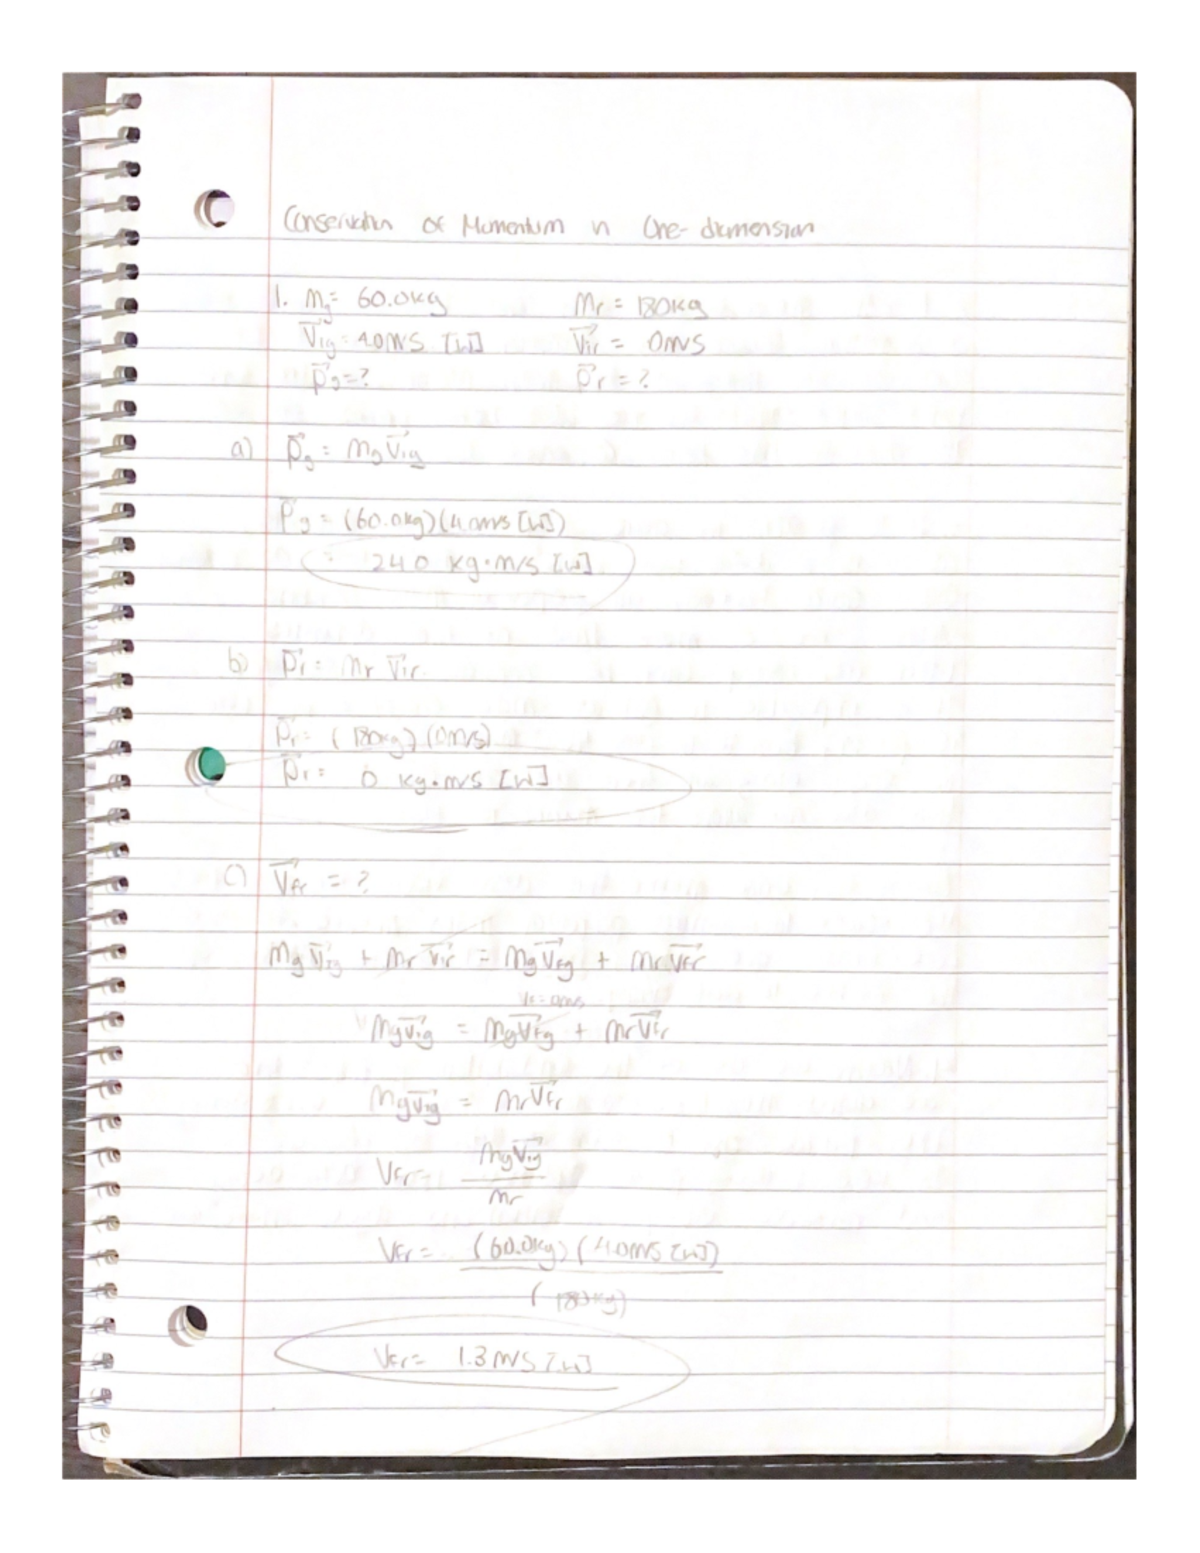 Conservation of Momentum in One-dimension
1. mg= 60.0kg mr = 180kg
v⃗ig= 4.0m/s [W] v⃗ir = 0m/s
p⃗g=? p⃗r = ?
a) p⃗g = mg v⃗ig
p⃗g = (60.0kg)(4.0m/s [W])
= 240 kg·m/s [W]
b) p⃗r = mr v⃗ir
p⃗r= (180kg)(0m/s)
p⃗r= 0 kg·m/s [W]
c) v⃗fr = ?
mg v⃗ig + mr v⃗ir = mg v⃗fg + mr v⃗fr
vf=0m/s
mg v⃗ig = mg v⃗fg + mr v⃗fr
mg v⃗ig = mr v⃗fr
vfr= mg v⃗ig
mr
vfr= (60.0kg)(4.0m/s [W])
(180kg)
vfr= 1.3 m/s [W]